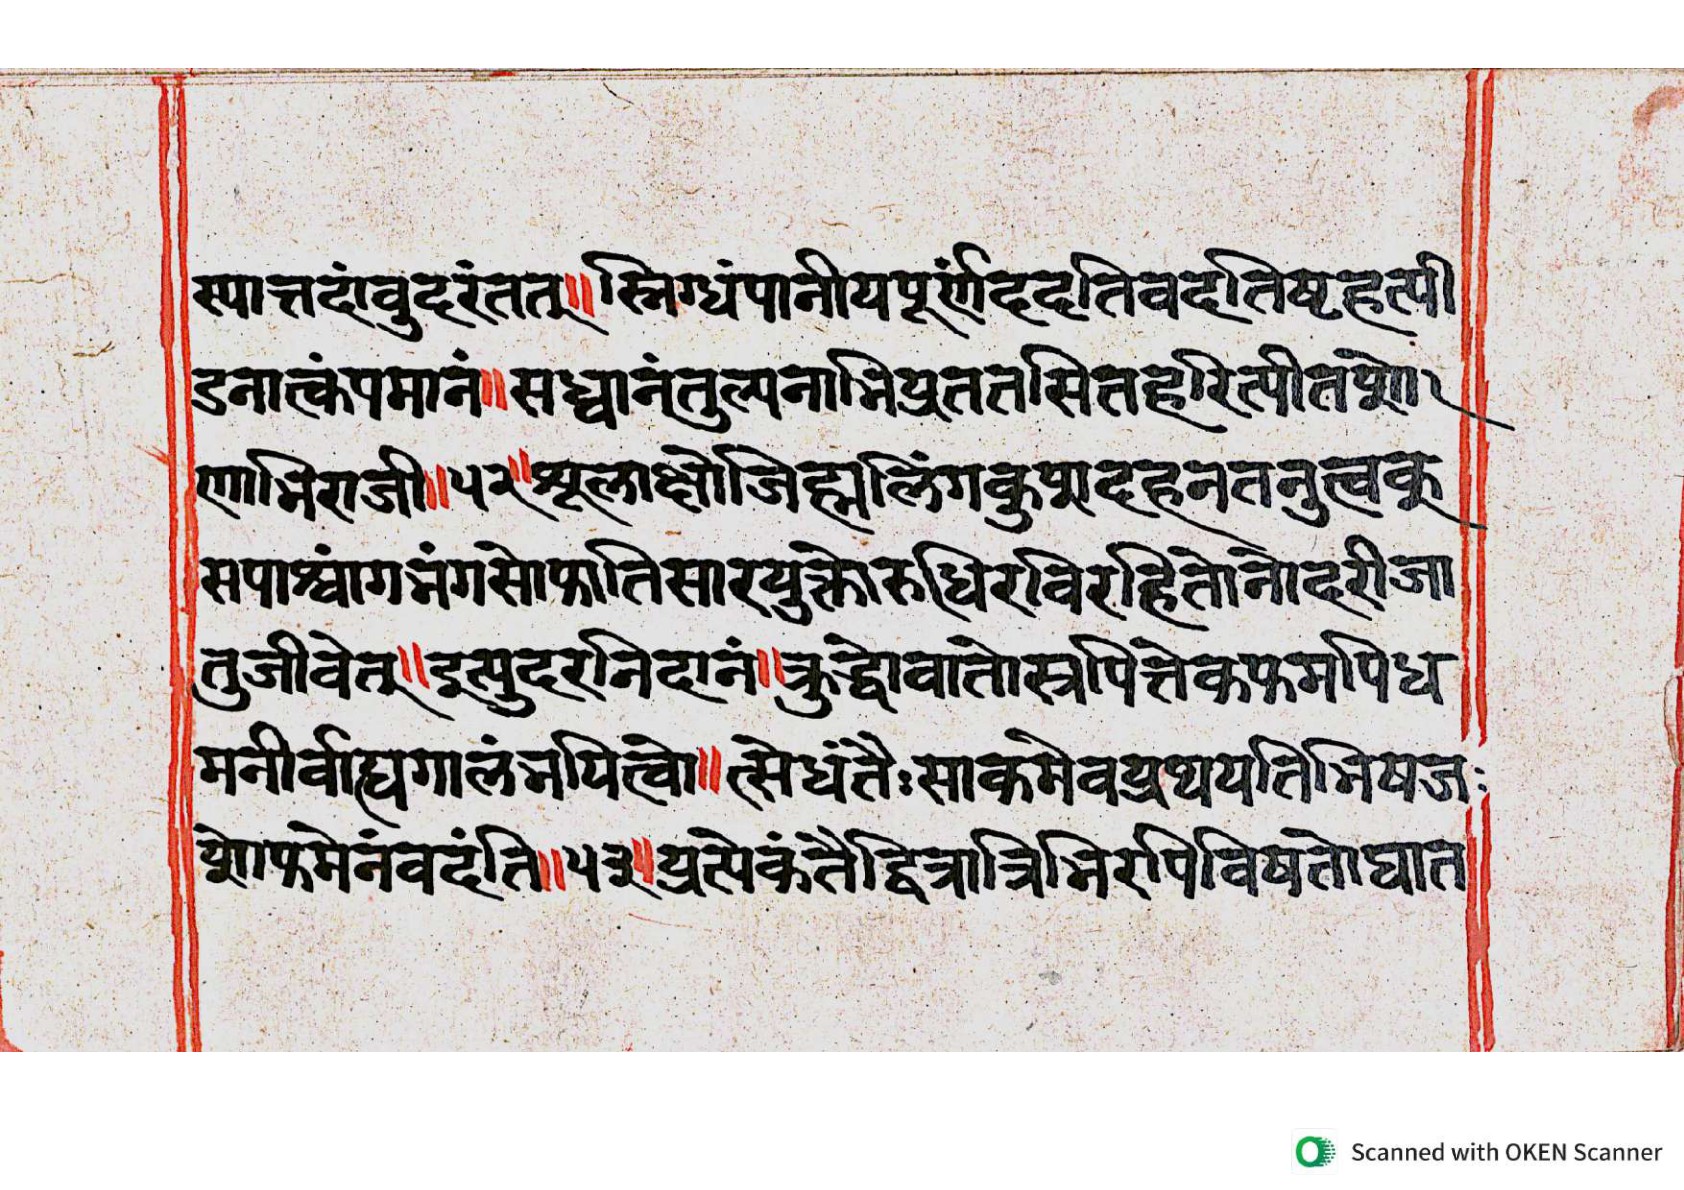 स्यात्तदांवुदरंतत्॥स्निग्धंपानीयपूर्णंदृदृतिवदतिषृहत्पी
डनात्कंपमानं॥सध्वानंतुल्यनाभिप्रततसितहरित्पीतशोण२
णाभिराजी॥५२॥शूलाक्षोजिह्मलिंगकुपादहनतनुत्वक्
सपार्श्वांगभंगसोफातिसारयुक्तोरुधिरविरहितोनोदरीजा
तुजीवेत्॥इत्युदरनिदानं॥क्रुद्धोवातोस्रपित्तेकफमपिध
मनीर्वाह्यगालंभयित्वो॥त्सेधंतैःसाकमेवप्रथयतिभिषजः
शोफमेनंवदंति॥५३॥प्रत्येकंतैर्द्वित्रात्रिभिरपिविषतोघात
Scanned with OKEN Scanner